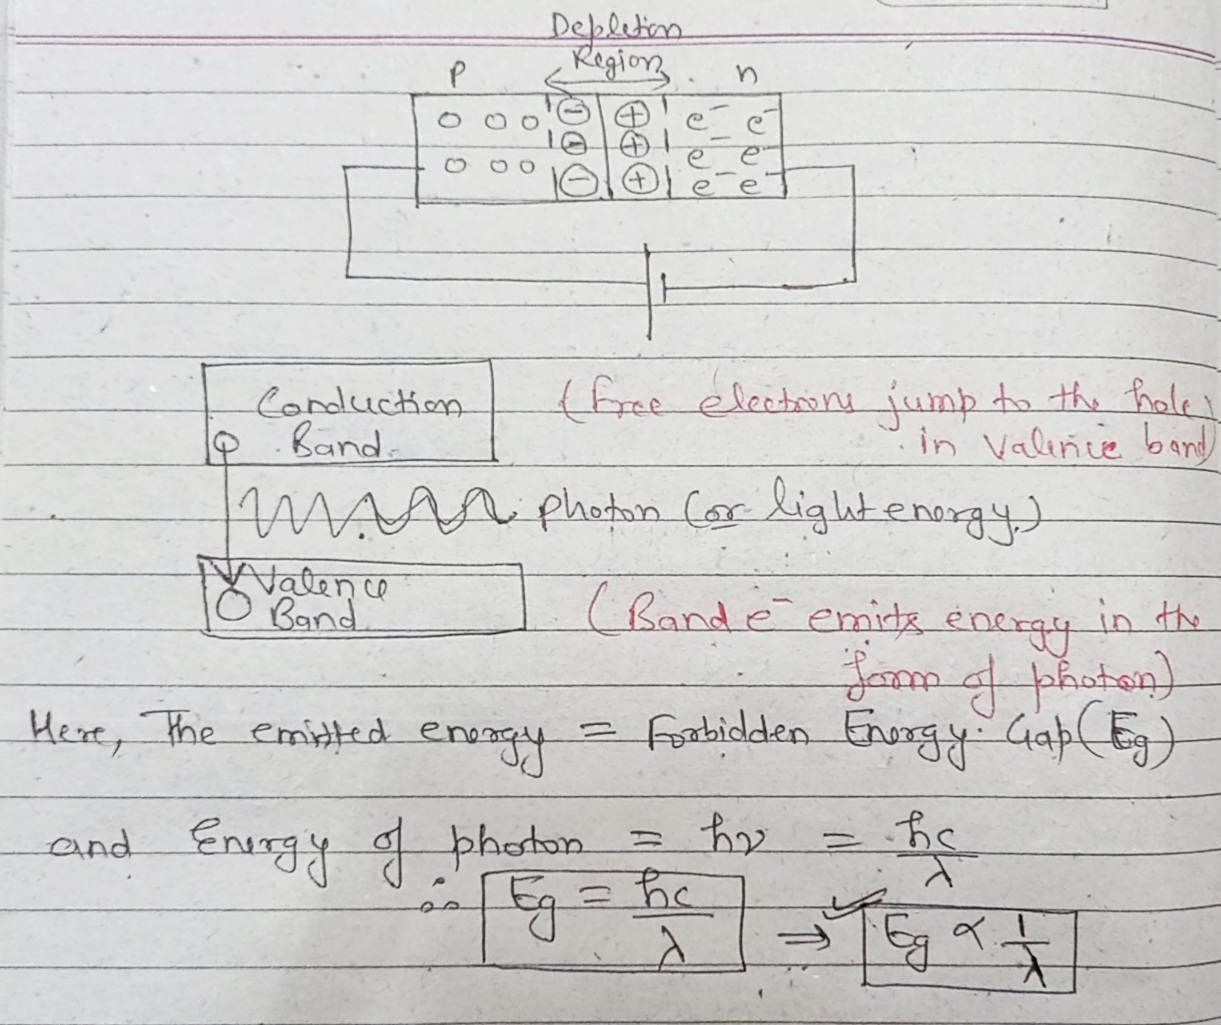 Depletion
Region
P n
⊖ ⊕ e⁻ e⁻
⊖ ⊕ e⁻ e⁻
⊖ ⊕ e⁻ e⁻
Conduction
Band
(free electrons jump to the holes
in Valence band)
photon (or light energy)
Valence
Band
(Band e⁻ emits energy in the
form of photon)
Here, The emitted energy = Forbidden Energy Gap (Eg)
and Energy of photon = hν = hc/λ
∴ Eg = hc/λ ⇒ Eg ∝ 1/λ